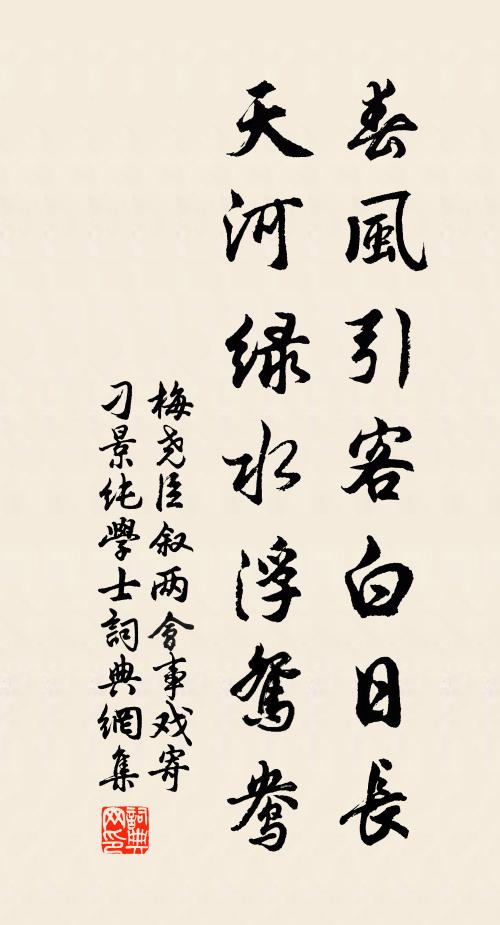 春風引客白日長
天河绿水浮鴛鴦
梅尧臣叙两會事戏寄
刁景纯學士詞典網集
詞典網印